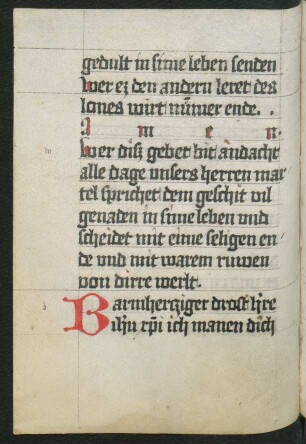 gedult in sime leben senden
wer ez den andern leret des
lones wirt nimmer ende.
A m e n.
Wer disz gebet bit andacht
alle dage vnsers herren mar
tel sprichet dem geschit vil
genaden in sime leben vnd
scheidet mit eime seligen en
de vnd mit warem ruwen
von dirre werlt.
Barmhertziger drost h're
ih'u xp̄i ich manen dich